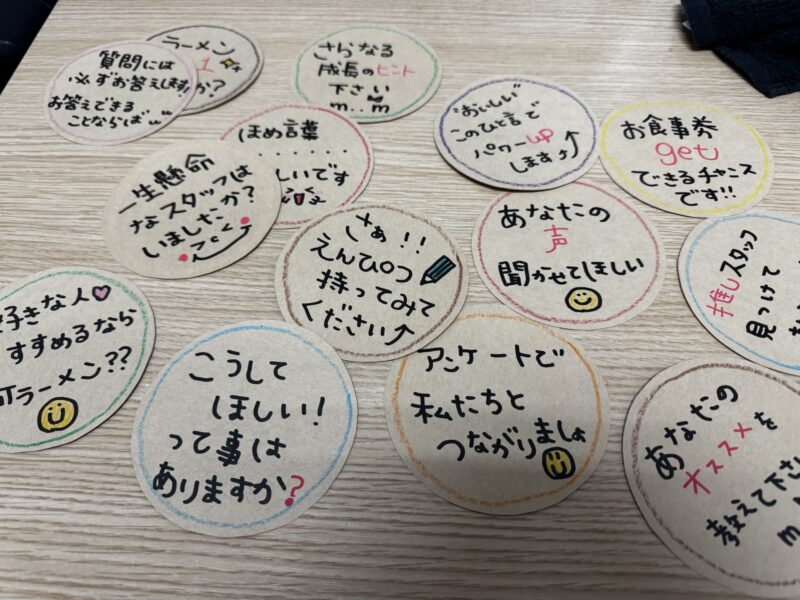 ラーメン
1
か?
質問には
必ずお答えします!
お答えできる
ことならば
さらなる
成長のヒント
下さい
m..m
"おいしい"
このひと言で
パワーup
します
お食事券
get
できるチャンス
です!!
ほめ言葉
しいです
一生懸命
なスタッフは
いましたか?
さぁ!!
えんぴつ
持ってみて
ください
あなたの
声
聞かせてほしい
推しスタッフ
見つけて
好きな人♡
すすめるなら
ラーメン??
こうして
ほしい!
って事は
ありますか?
アンケートで
私たちと
つながりましょ
あなたの
オススメを
教えて下さ
m